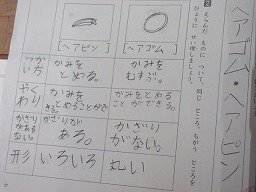 ヘアゴム・ヘアピン
2 えらんだ ものに ついて、同じ ところ、ちがう ところを
ひょうに せい理しましょう。
[ヘアピン]
[ヘアゴム]
つかい方
かみを
とめる。
かみを
むすぶ。
やくわり
かみを
とめることができ
る。
かみをとめる
ことができる。
かざりがあるかない
かざりが
ある。
かざり
がない。
形
いろいろ
丸い